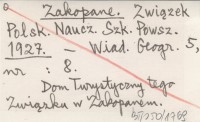 Zakopane. Związek
Polsk. Naucz. Szk. Powsz.
1927. — Wiad. Geogr. 5,
nr : 8.
Dom Turystyczny tego
Związku w Zakopanem.